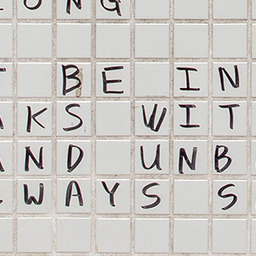 ONG
BE IN
AKS WIT
AND UNB
WAYS S